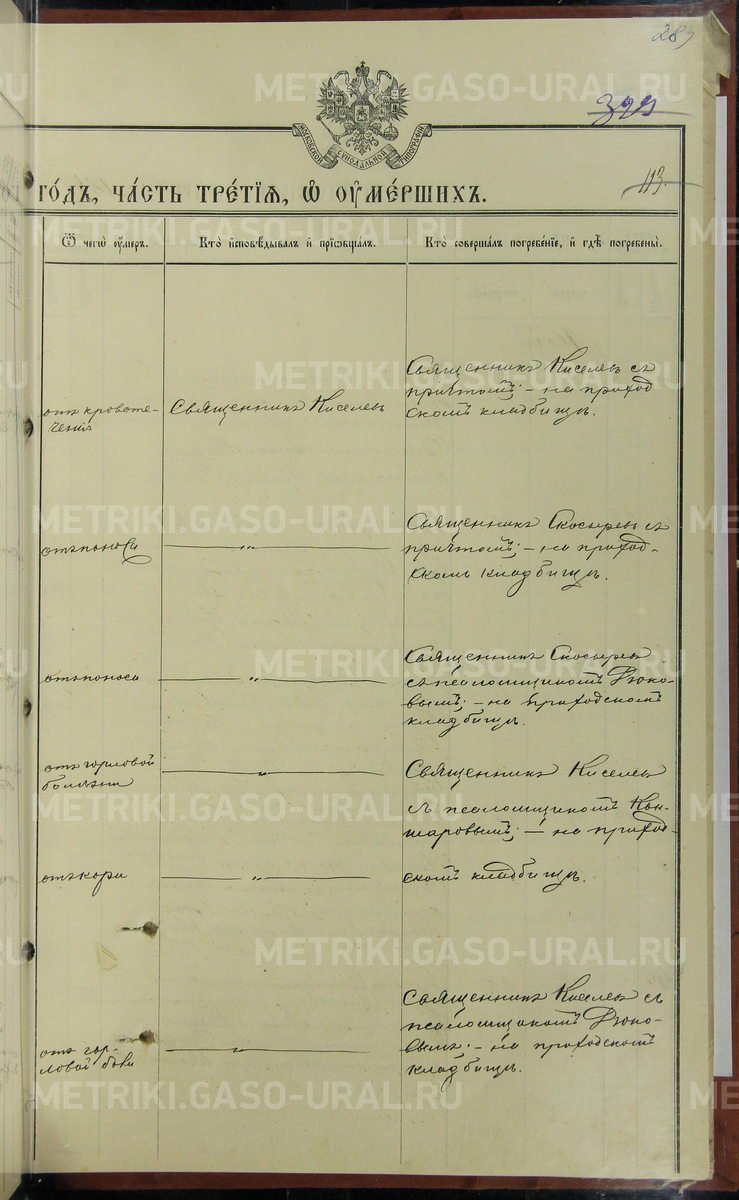 283
329
113
МОСКОВСКОЙ СѴНОДАЛЬНОЙ ТИПОГРАФІИ
ГО́ДЪ, ЧА́СТЬ ТРЕ́ТІѦ, Ѽ ОУМЕ́РШИХЪ.
Ѿ чегѡ̀ оу҆́меръ.
Кто̀ и҆сповѣ́дывалъ и҆ прїѡбща́лъ.
Кто̀ соверша́лъ погребе́нїе, и҆ гдѣ̀ погребены̀.
отъ кровоте-
ченія
Священникъ Киселевъ
Священникъ Киселевъ съ
причтомъ; – на приход
скомъ кладбищѣ.
отъ поноса
— „ —
Священникъ Скосыревъ съ
причтомъ; – на приход-
скомъ кладбищѣ.
отъ поноса
— „ —
Священникъ Скосыревъ
съ псаломщикомъ Дюко-
вымъ; – на приходскомъ
кладбищѣ.
отъ горловой
болѣзни
— „ —
Священникъ Киселевъ
съ псаломщикомъ Кон-
шаровымъ; – на приход-
отъ кори
— „ —
скомъ кладбищѣ.
отъ гор-
ловой боли
— „ —
Священникъ Киселевъ съ
псаломщикомъ Дюко-
вымъ; – на приходскомъ
кладбищѣ.
METRIKI.GASO-URAL.RU